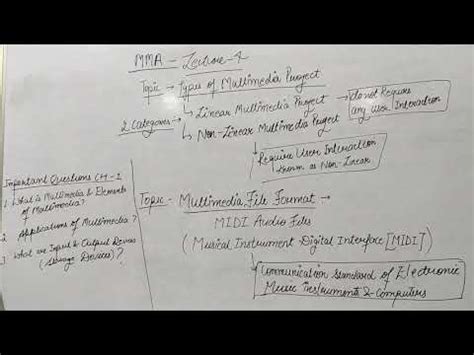 MMA - Lecture-4
Topic → Types of Multimedia Project
2 Categories → Linear Multimedia Project → do not Require any User Interaction
→ Non-Linear Multimedia Project
→ Require User Interaction
known as Non-Linear
Important Questions CH-1
1 What is Multimedia & Elements
of Multimedia?
2 Applications of Multimedia?
3 What are Input & Output Devices
(Storage Devices)?
Topic - Multimedia File Format -
MIDI Audio Files
(Musical Instrument Digital Interface [MIDI])
→ Communication Standard of Electronic
Music Instruments & Computers